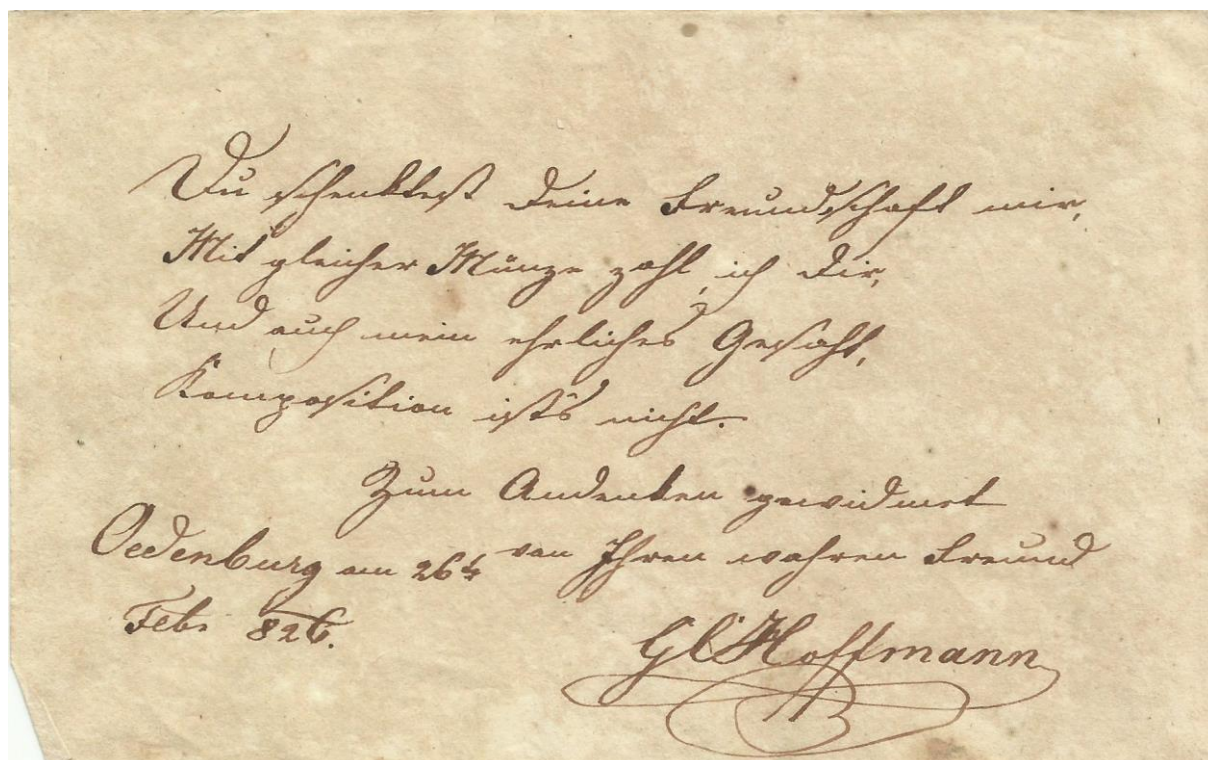 Du schenktest deine Freundschaft mir,
Mit gleicher Münze zahl ich dir,
Und auch mein ehrliches Gesicht,
Komposition ist's nicht.
Zum Andenken gewidmet
von Ihren wahren Freund
Oedenburg am 26t
Febr 826.
Hoffmann